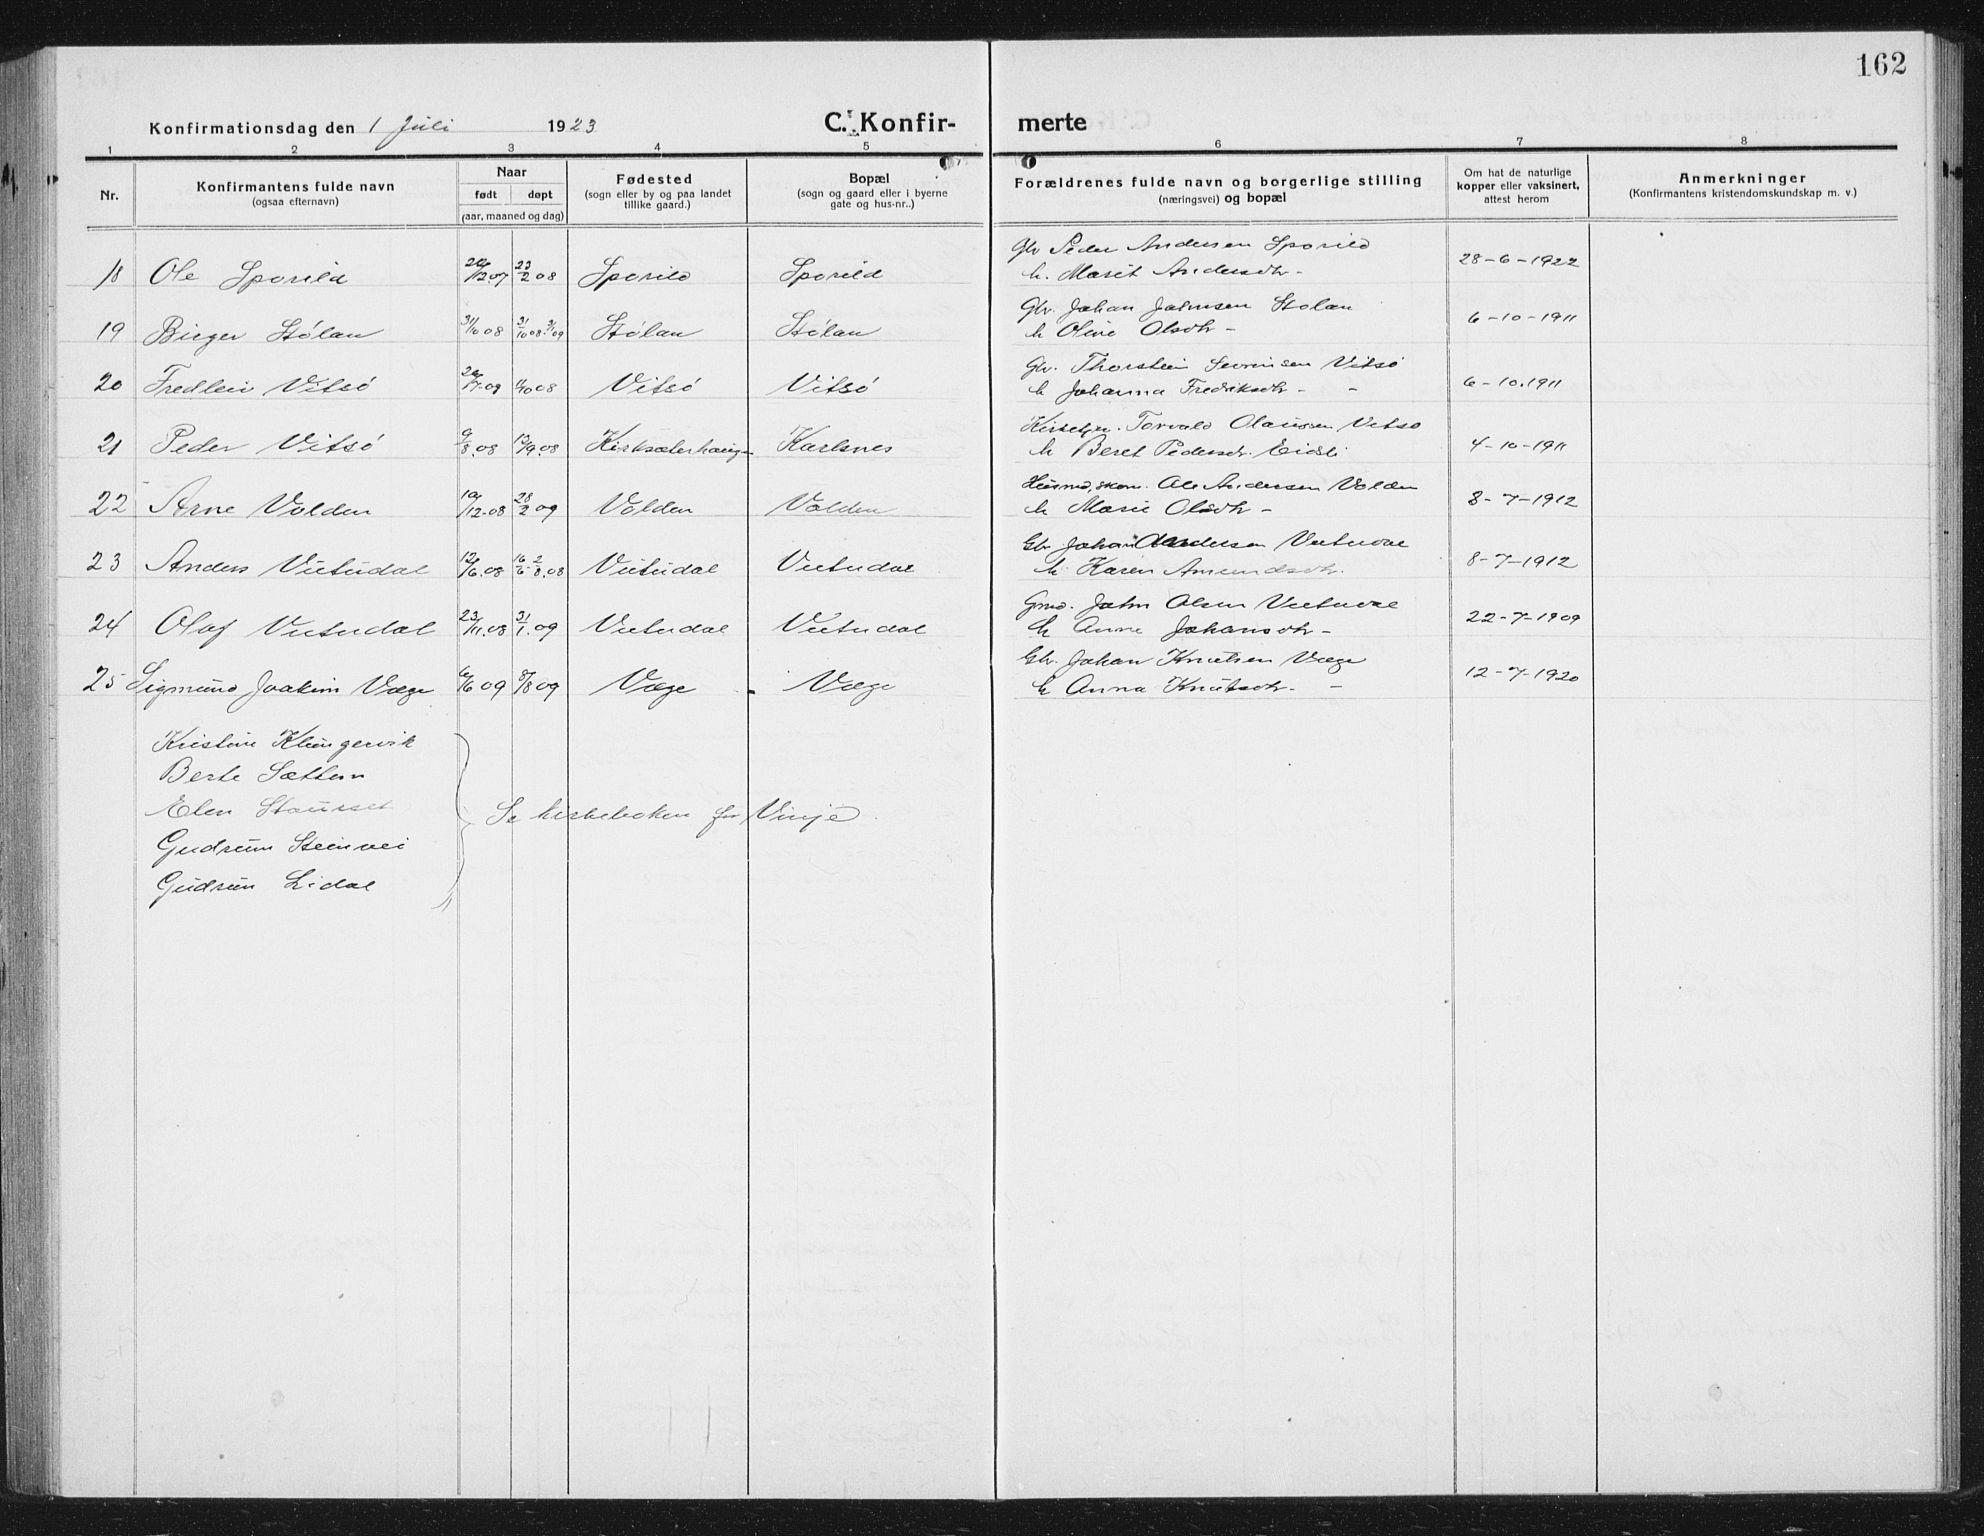 162
Konfirmationsdag den 1 Juli 1923 C. Konfir- merte
1 2 3 4 5 6 7 8
Nr. Konfirmantens fulde navn (ogsaa efternavn) Naar født døpt (aar, maaned og dag) Fødested (sogn eller by og paa landet tillike gaard.) Bopæl (sogn og gaard eller i byerne gate og hus-nr..) Forældrenes fulde navn og borgerlige stilling (næringsvei) og bopæl Om hat de naturlige kopper eller vaksinert, attest herom Anmerkninger (Konfirmantens kristendomskundskap m. v.)
Peder Andersen Sporild
18 Ole Sporild 23/2 08 Sporild Sporild 28-6-1922
h. Marit Andersdtr. -
Gbr. Johan Johnsen Stølan
19 Birger Stølan 31/10 08 Stølan Stølan 6-10-1911
h Oline Olsdtr -
Thorstein Sevrinsen Vitsø
20 Fredlei Vitsø Vitsø Vitsø 6-10.1911
h Johanna Fredriksdtr - -
Torvald Olaussen Vitsø
21 Peder Vitsø 9/8.08 13/9.08 Kirksæterhaugen Karlsnes 4-10-1911
h Beret Pedersdtr. Eidsli
Ole Andersen Volden
22 Arne Volden 19/12-08 28/2 09 Volden Volden 8-7-1912
h Marie Olsdtr -
Gbr. Johan Andersen Vutudal
23 Anders Vutudal 12/6.08 Vutudal Vutudal 8-7-1912
h. Karen Amundsdtr.
Gmd. John Olsen Vutudal
24 Olaf Vutudal 23/11.08 31/1.09 Vutudal Vutudal 22-7-1909
h Anne Johansdtr -
Gbr. Johan Knutsen Væge
25 Sigmund Joakim Væge 6/6 09 8/8 09 Væge - Væge 12-7-1920
h Anna Knutsdtr. -
Kristine Klungervik
Berte Sættem
Elen Staurset
Se kirkeboken for Vinje
Gudrun Steinvei
Gudrun Lidal